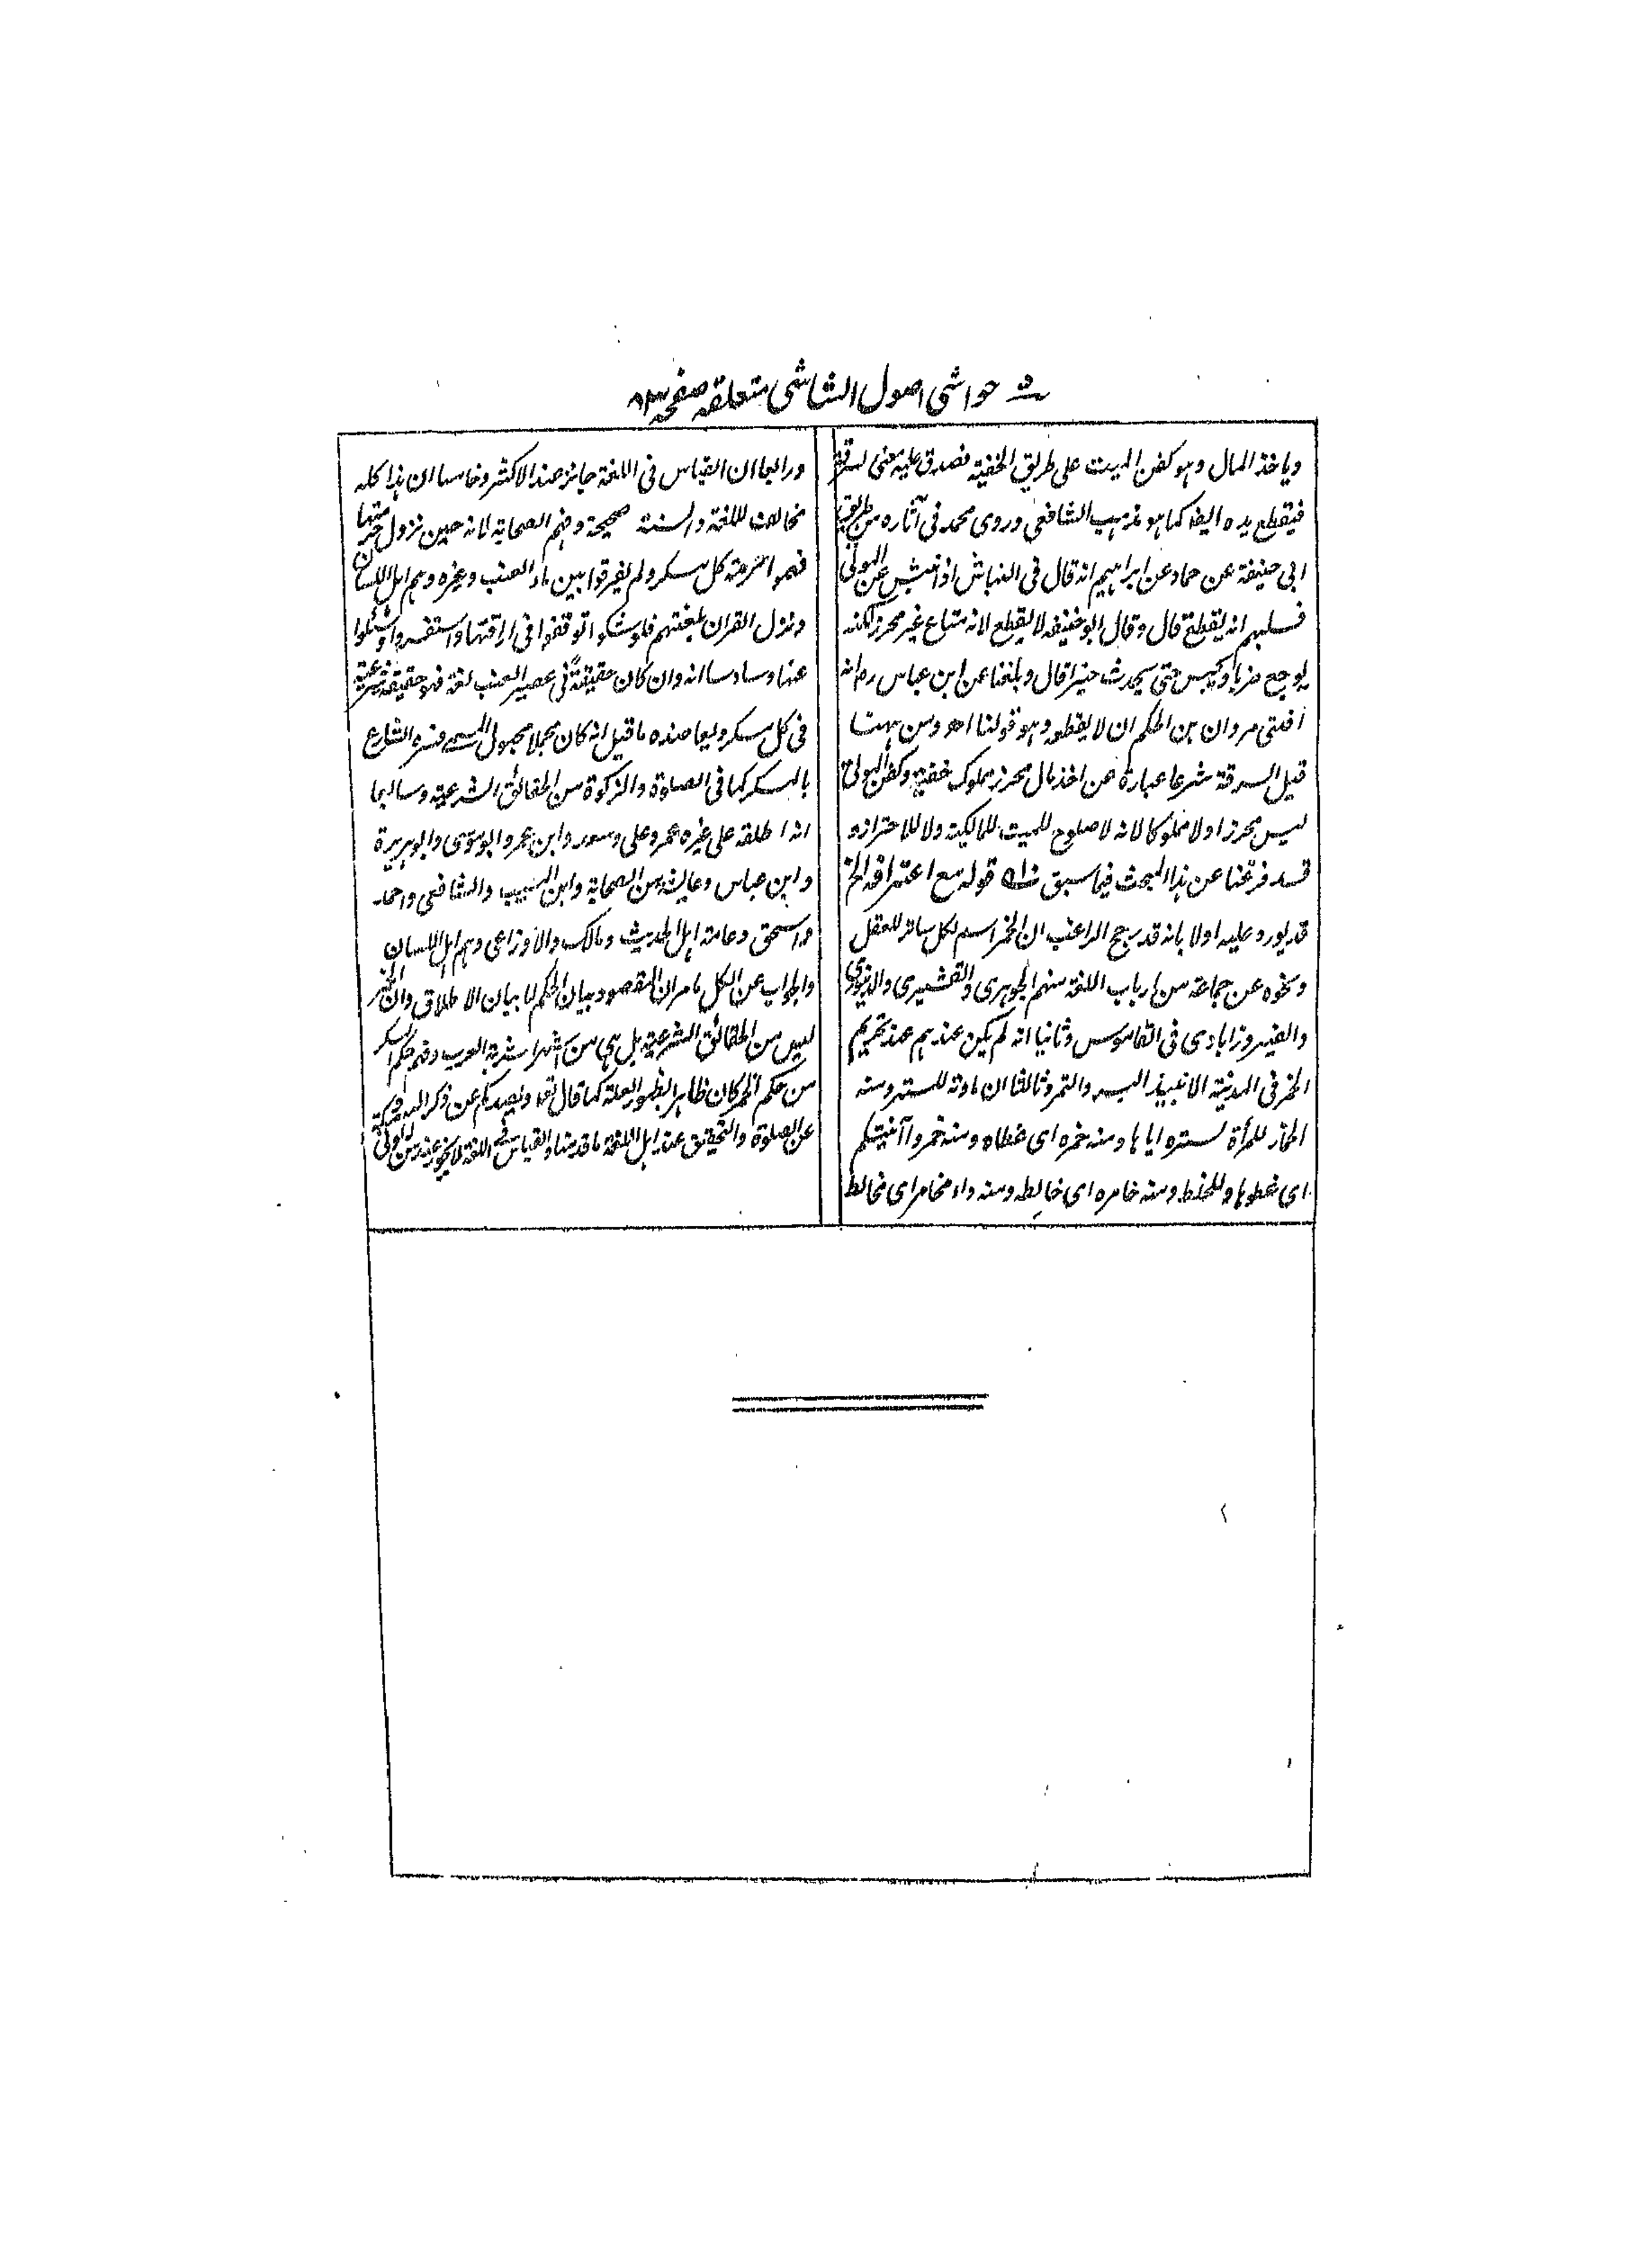 حواشی اصول الشاشی متعلقہ صفحہ ۸۳
وياخذ المال وهو كفن الميت على طريق الخفية فصدق عليه معنى السرقة
فيقطع يده ايضا كما هو مذهب الشافعي وروى محمد في آثاره من طريق
ابي حنيفة عن حماد عن ابراهيم انه قال في النباش اذا نبش عن الموتى
فسلبهم انه يقطع قال وقال ابو حنيفة لا يقطع لانه متاع غير محرز لكنه
يوجع ضربا ويحبس حتى يحدث خيرا قال وبلغنا عن ابن عباس رض انه
افتى مروان بن الحكم ان لا يقطعه وهو قولنا اهـ ومن ههنا
قيل السرقة شرعا عبارة عن اخذ مال محرز مملوك خفية وكفن الموتى
ليس محرزا ولا مملوكا لانه لا صلوح للميت للمالكية ولا للاحتراز و
قد فرغنا عن هذا البحث فيما سبق قوله مع اعترافه الخ
قد يورد عليه اولا بانه قد رجح الراغب ان الخمر اسم لكل ساتر للعقل
ونحوه عن جماعة من ارباب اللغة منهم الجوهري والقشيري والدينوري
والفيروزابادي في القاموس وثانيا انه لم يكن عندهم عند تحريم
الخمر في المدينة الا نبيذ البسر والتمر وثالثا ان مادته للستر ومنه
الخمار للمرأة لستره اياها ومنه خمره اى غطاه ومنه خمروا آنيتكم
اى غطوها وللخلط ومنه خامره اى خالطه ومنه داء مخامر اى مخالط
ورابعا ان القياس في اللغة جائز عند الاكثر وخامسا ان هذا كله
مخالف للغة والسنة صحيحة وفهم الصحابة لانه حين نزول حرمتها
فهموا حرمة كل مسكر ولم يفرقوا بين ماء العنب وغيره وهم اهل اللسان
ونزول القران بلغتهم فلو شكوا توقفوا في اراقتها واستفسروا وسئلوا
عنها وسادسا انه وان كان حقيقة في عصير العنب لغة فهو حقيقة شرعية
في كل مسكر ويعاضده ما قيل انه كان مجملا مجهول المسمى فسره الشارع
بالمسكر كما في الصلوة والزكوة من الحقائق الشرعية وسابعا
انه اطلقه على غيره عمر وعلى وسعد وابن عمر وابو موسى وابو هريرة
وابن عباس وعايشة من الصحابة وابن المسيب والشافعي واحمد
واسحق وعامة اهل الحديث ومالك والاوزاعي وهم اهل اللسان
والجواب عن الكل ما مر ان المقصود بيان الحكم لا بيان الاطلاق وان الخمر
ليس من الحقائق الشرعية بل هى من اشهر اشربة العرب وفهم حكم المسكر
من حكم الخمر كان ظاهرا لظهور العلة كما قال تعه ويصدكم عن ذكر الله و
عن الصلوة والتحقيق عند اهل اللغة ما قدمنا والقياس في اللغة لا يجوز عند من